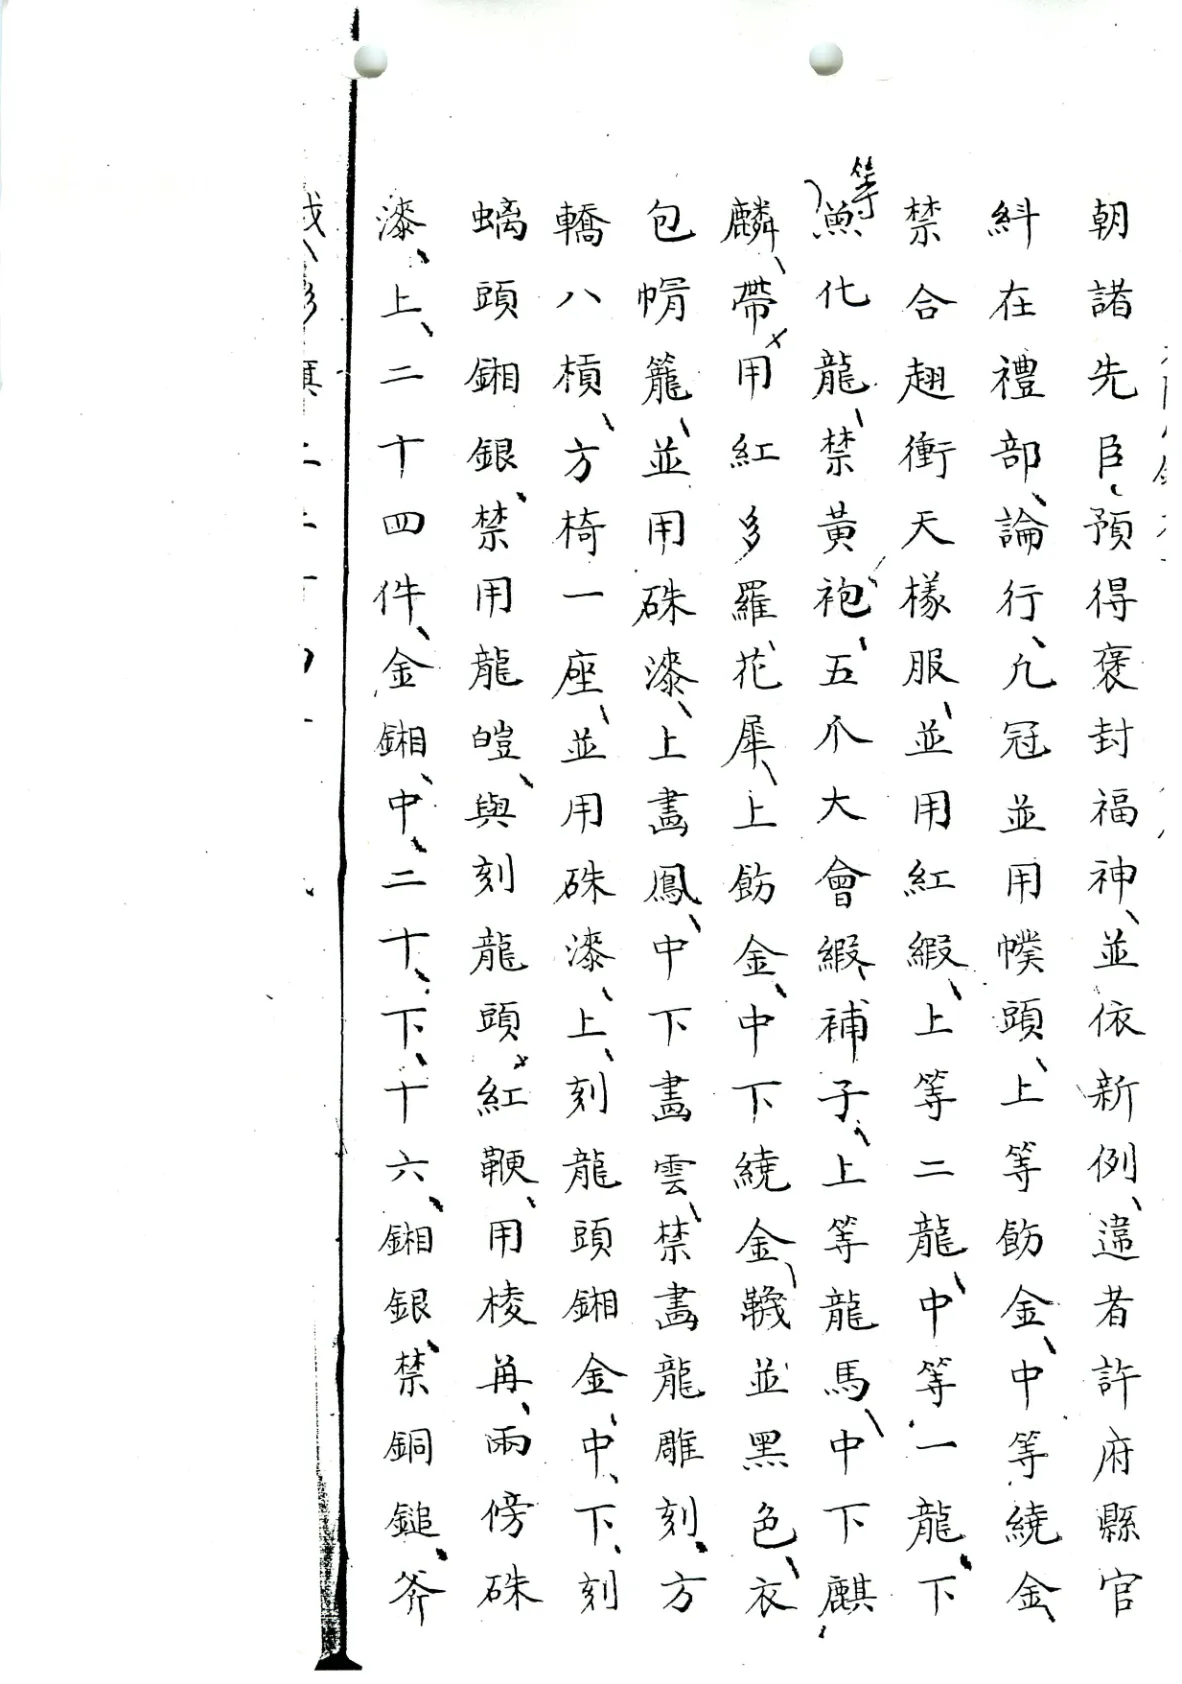 朝諸先臣、預得褒封福神、並依新例、違者許府縣官
糾在禮部、論行、凢冠並用幞頭、上等飭金、中等繞金、
禁合翅衝天樣服、並用紅緞、上等二龍、中等一龍、下
等魚化龍、禁黃袍、五爪大會緞、補子、上等龍馬、中下麒
麟、帶用紅多羅花犀、上飭金、中下繞金、韈並黑色、衣
包幘籠、並用硃漆、上畵鳳、中下畵雲、禁畵龍雕刻、方
轎八槓、方椅一座、並用硃漆、上、刻龍頭鎺金、中、下、刻
螭頭鎺銀、禁用龍皚、與刻龍頭、紅鞭、用棱再、兩傍硃
漆、上、二十四件、金鎺、中、二十、下、十六、鎺銀、禁銅鎚、斧